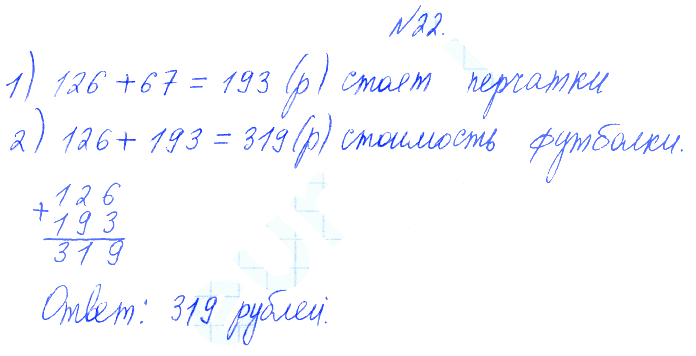 №22.
1) 126 + 67 = 193 (р) стоят перчатки
2) 126 + 193 = 319 (р) стоимость футболки.
+ 126
193
319
Ответ: 319 рублей.